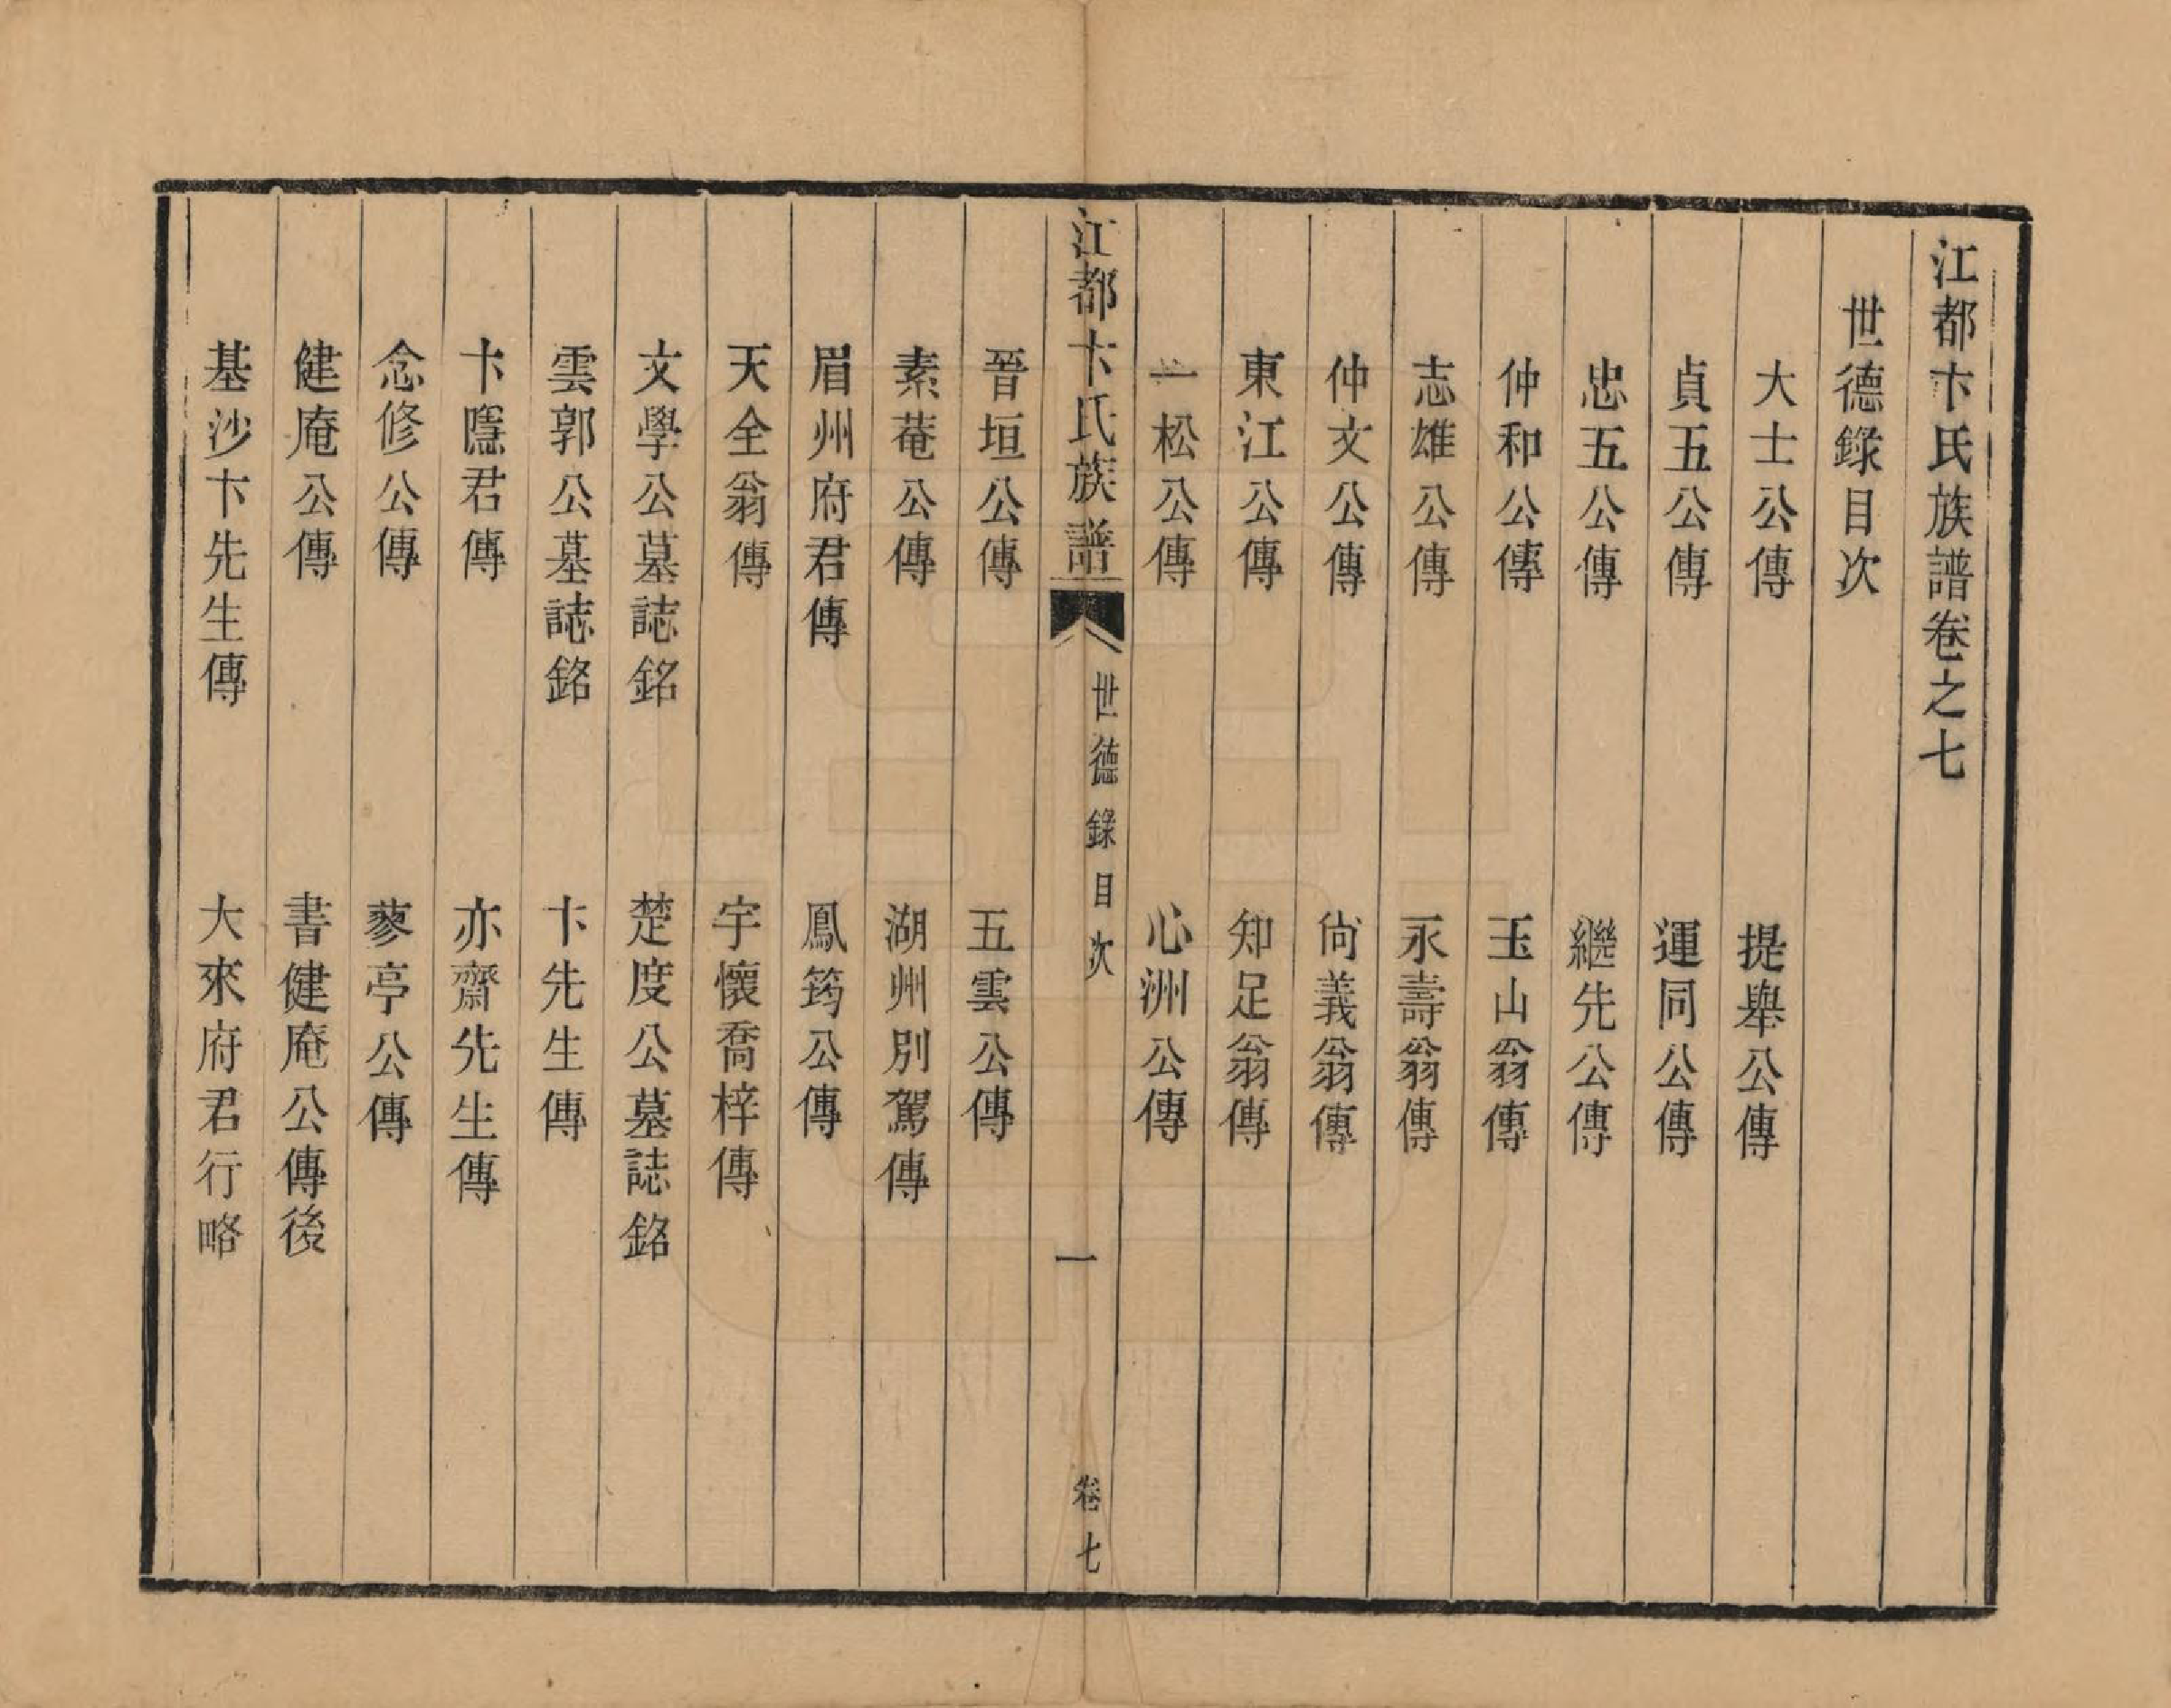 江都卞氏族譜卷之七
世德錄目次
大士公傳　提舉公傳
貞五公傳　運同公傳
忠五公傳　繼先公傳
仲和公傳　玉山翁傳
志雄公傳　永壽翁傳
仲文公傳　尙義翁傳
東江公傳　知足翁傳
一松公傳　心洲公傳
江都卞氏族譜　世德錄目次　一　卷七
晉垣公傳　五雲公傳
素菴公傳　湖州別駕傳
眉州府君傳　鳳筠公傳
天全翁傳　宇懷喬梓傳
文學公墓誌銘　楚度公墓誌銘
雲郭公墓誌銘　卞先生傳
卞隱君傳　亦齋先生傳
念修公傳　蓼亭公傳
健庵公傳　書健庵公傳後
基沙卞先生傳　大來府君行略